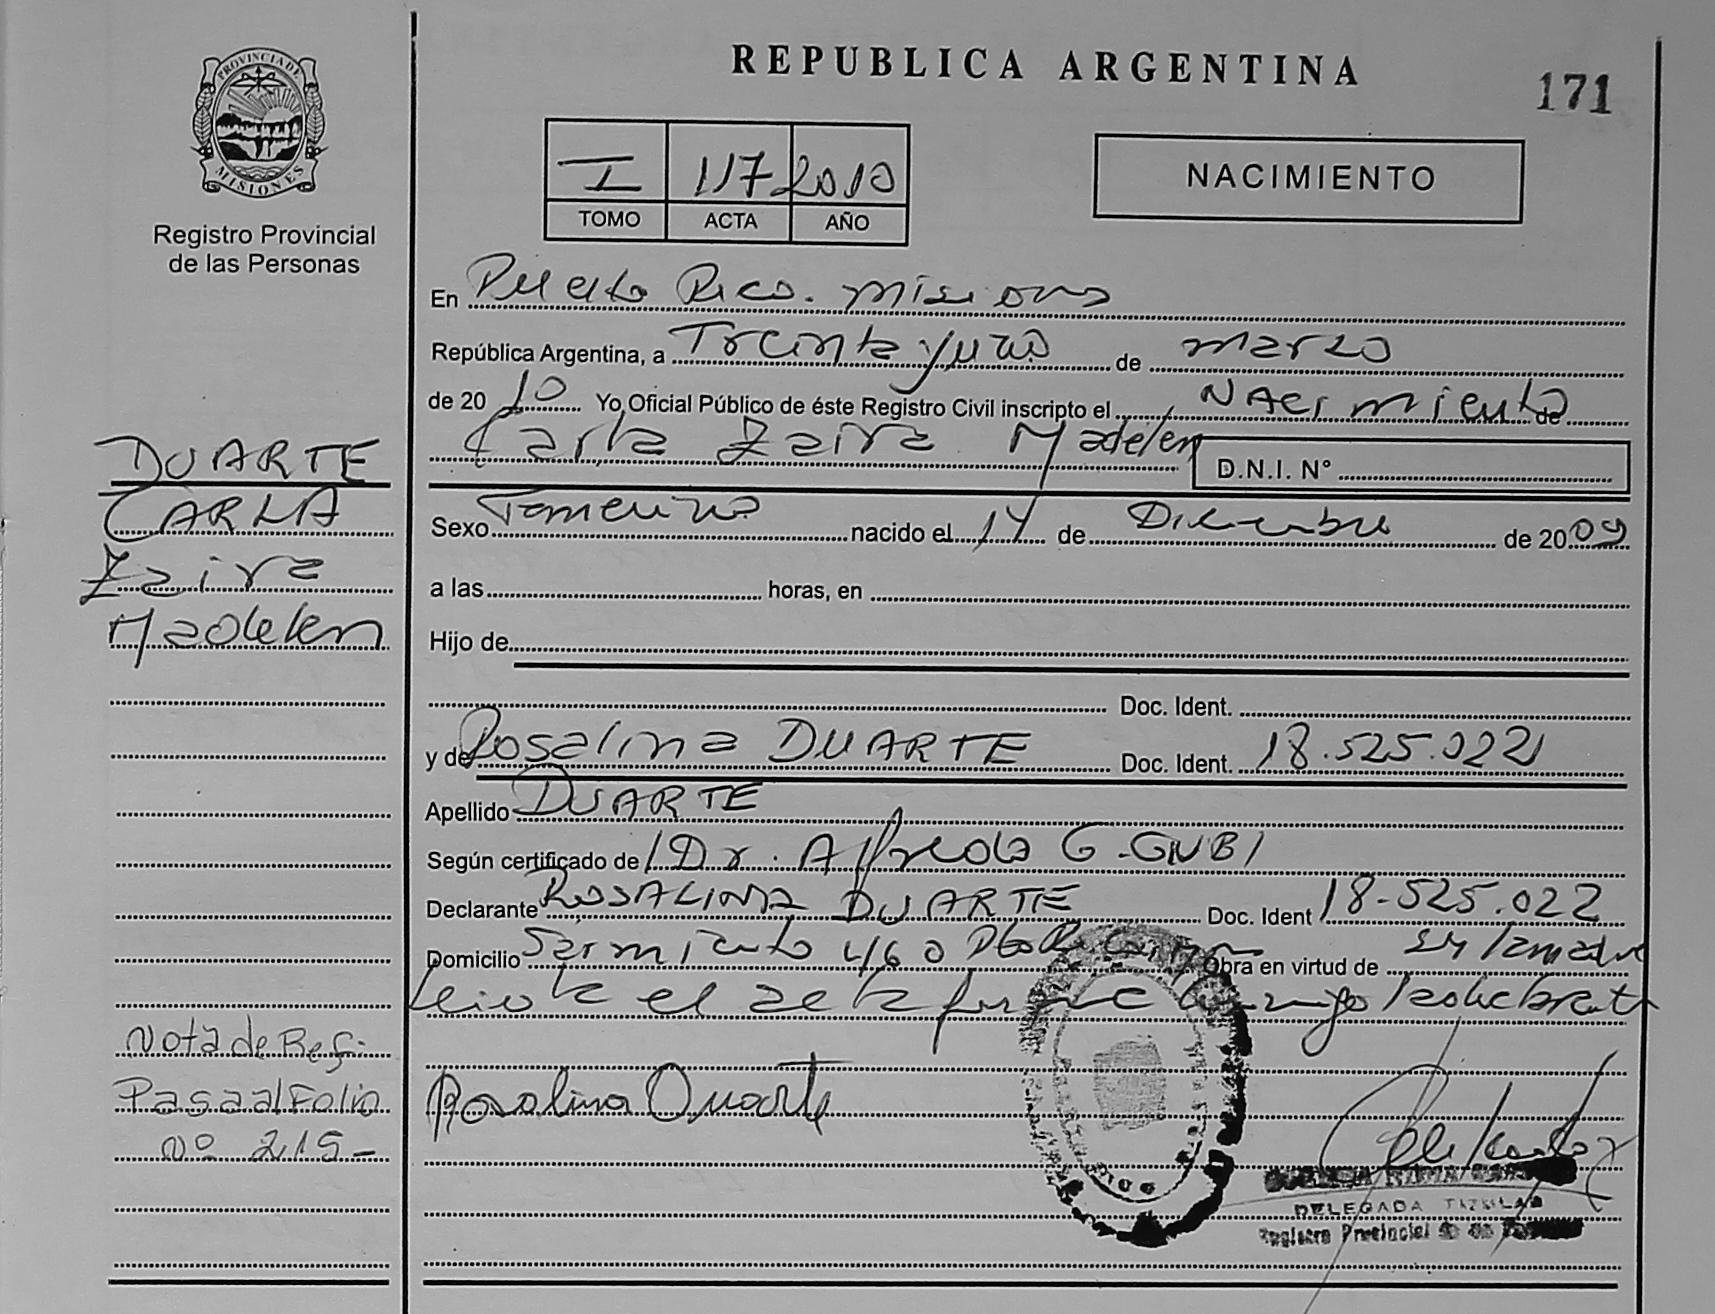 REPUBLICA ARGENTINA
171
PROVINCIA DE
MISIONES
Registro Provincial
de las Personas
I 117 2010
TOMO ACTA AÑO
NACIMIENTO
En Puerto Rico. Misiones
República Argentina, a Treinta y uno de marzo
de 20 10 Yo Oficial Público de éste Registro Civil inscripto el Nacimiento de
Carla Zaira Madelen D.N.I. N°
Sexo Femenino nacido el 14 de Diciembre de 20 09
a las horas, en
Hijo de
Doc. Ident.
y de Rosalina DUARTE Doc. Ident. 18.525.022
Apellido DUARTE
Según certificado de Dr. Alfredo G.
Declarante ROSALINA DUARTE Doc. Ident 18.525.022
Domicilio Sarmiento 460 Obra en virtud de
Leida el acta firma
Rosalina Duarte
DELEGADA TITULAR
Registro Provincial de
DUARTE
CARLA
Zaira
Madelen
Nota de Ref.
Pasa al Folio
Nº 215-